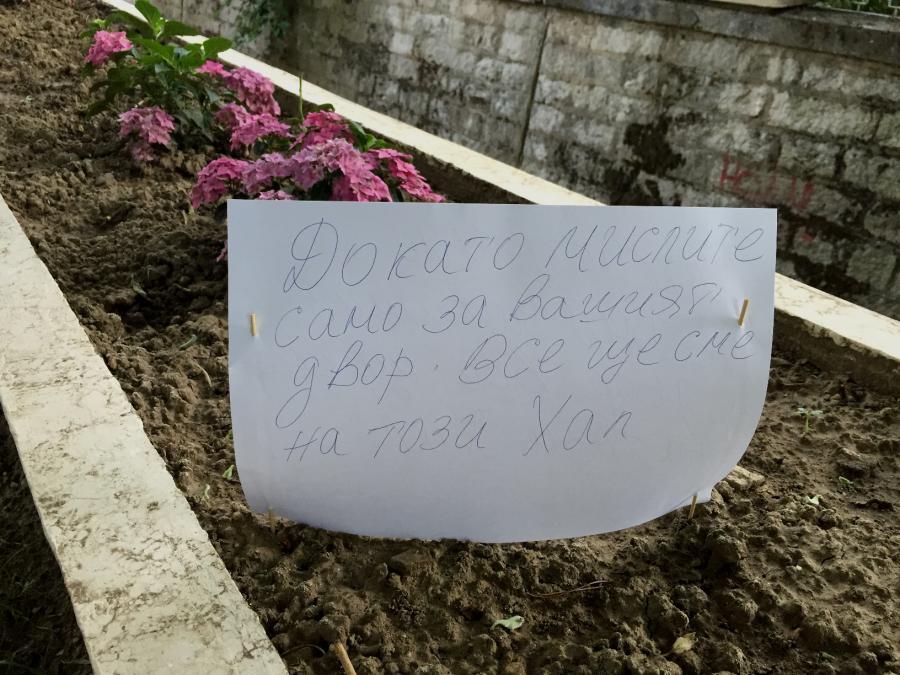 Докато мислите
само за вашият
двор. Все ще сме
на този Хал